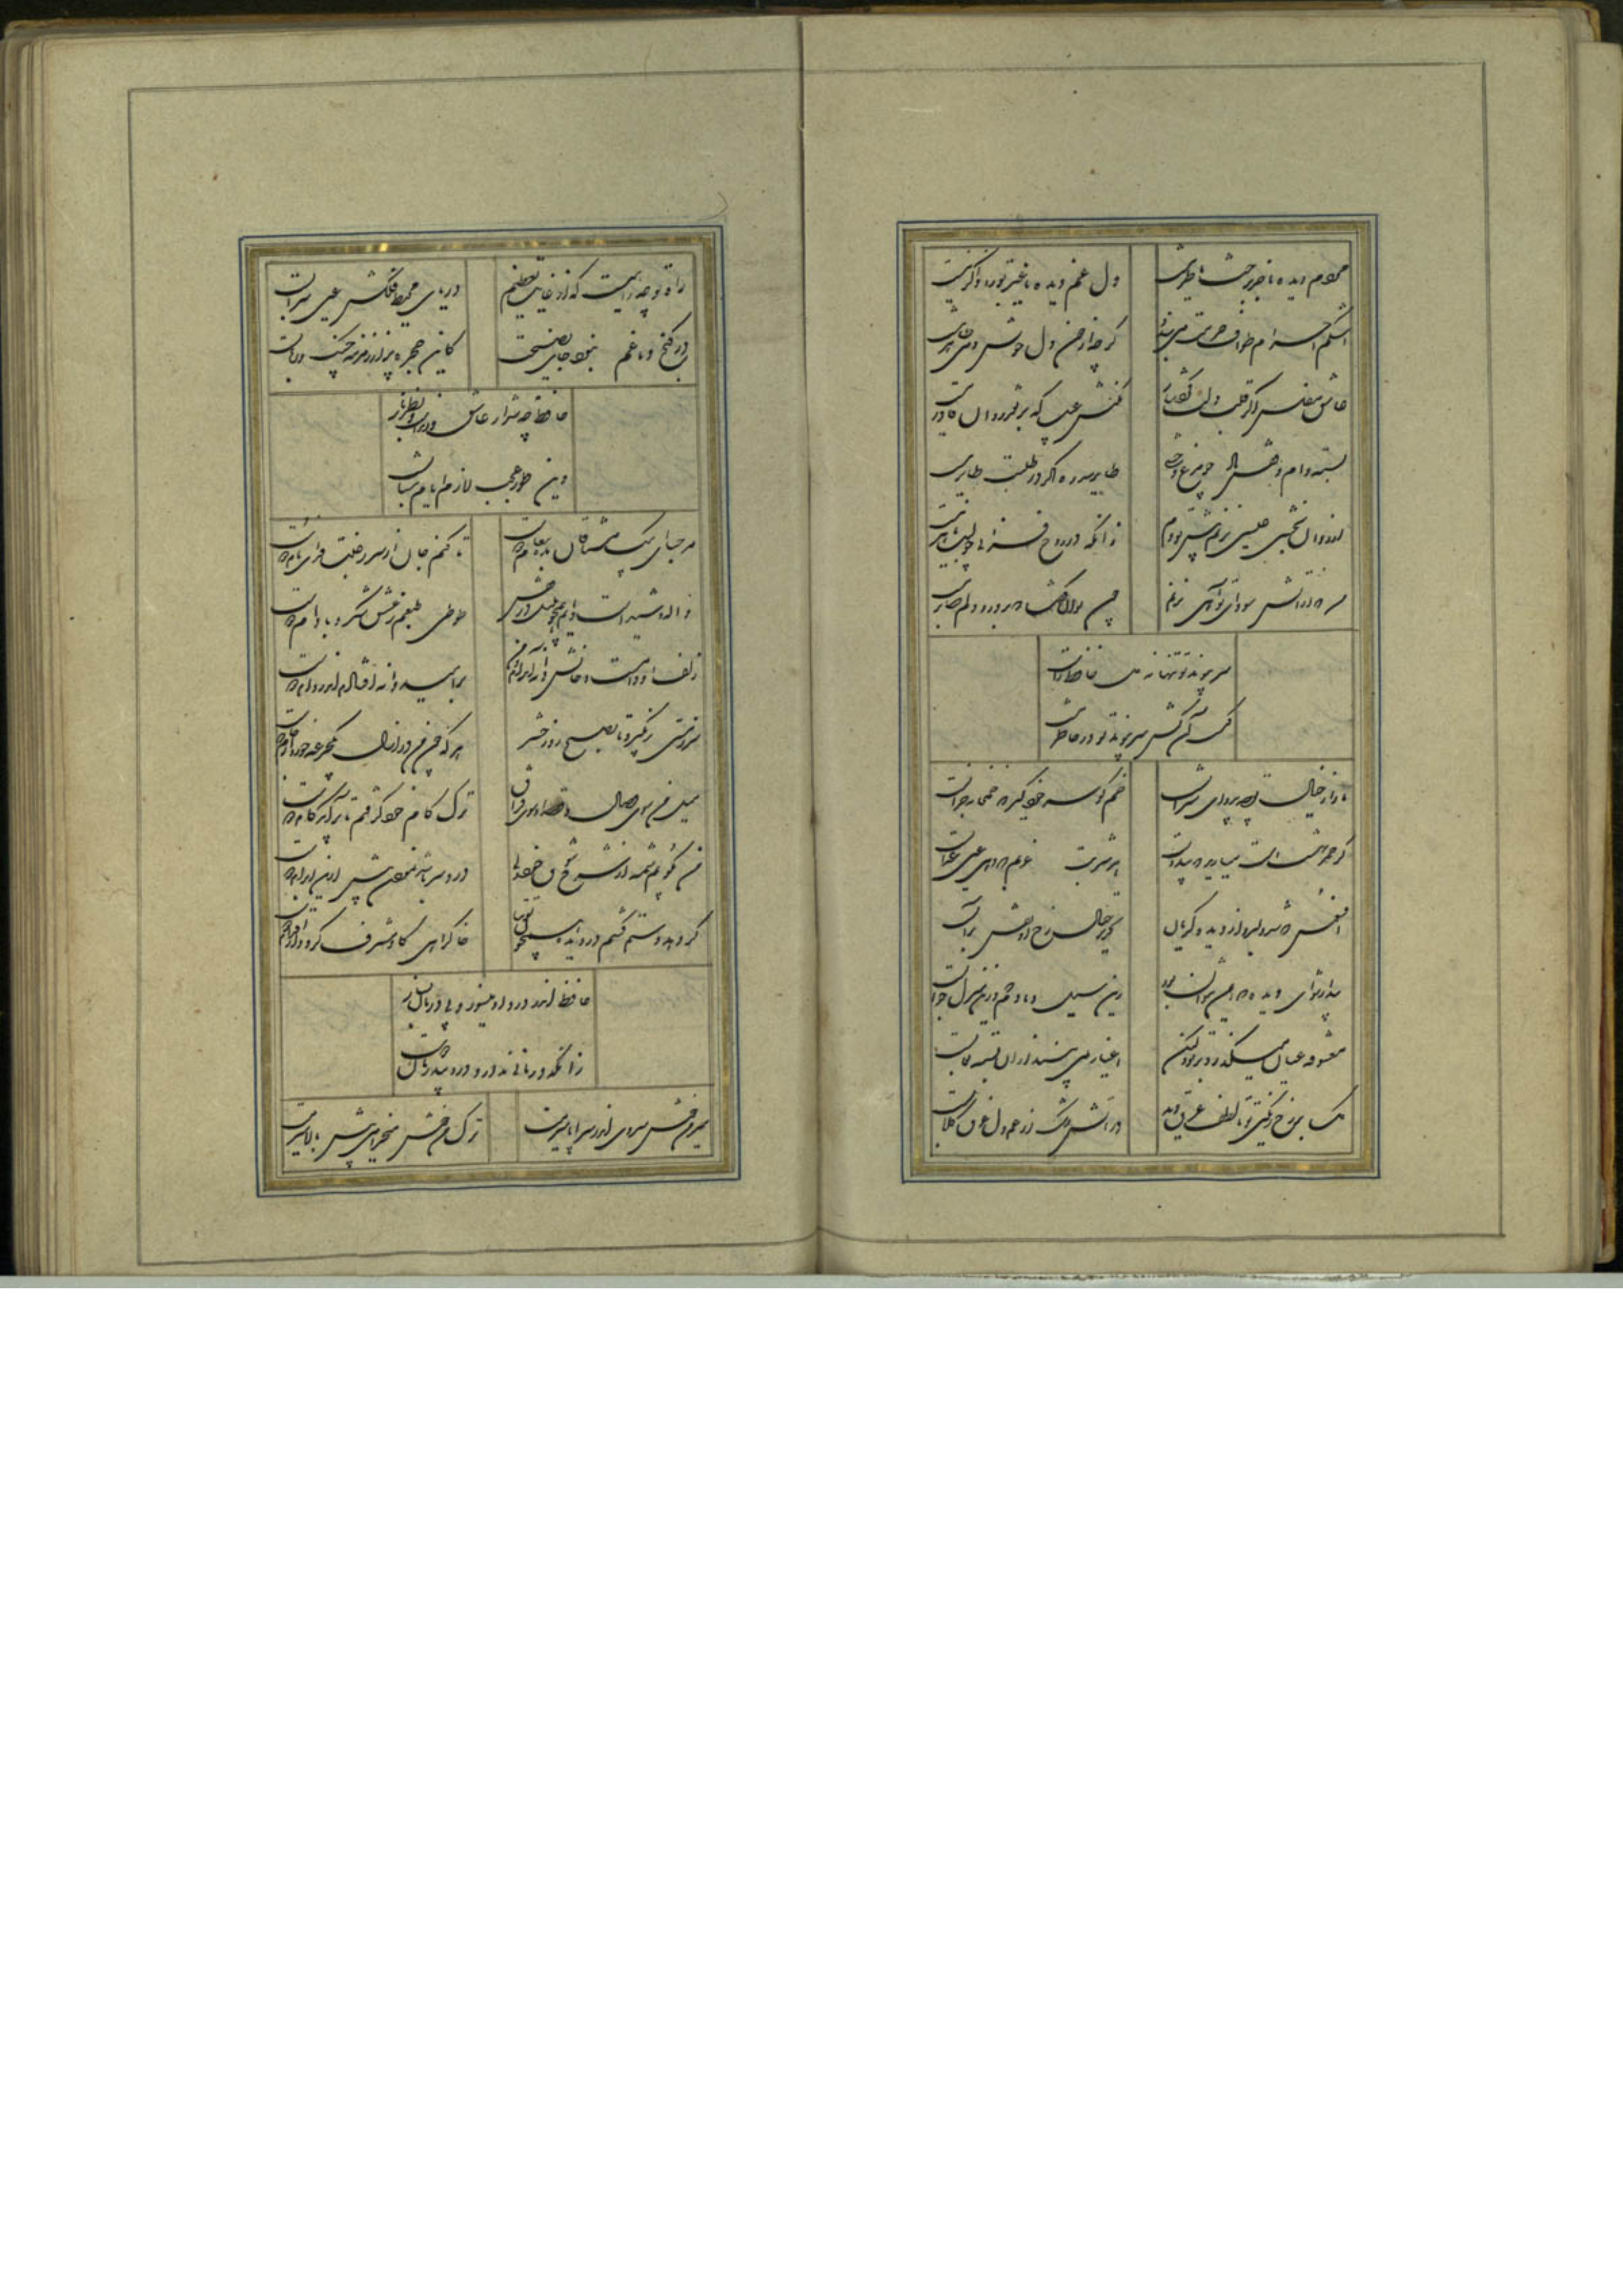 مردم دیده ما جز به رخت ناظر نیست
دل غم دیده ما غیر تو را ذاکر نیست
اشکم احرام طواف حرمت می‌بندد
گرچه از خون دل خویش دمی طاهر نیست
عاشق مفلس اگر قلب دلت کرد نثار
مکنش عیب که بر نقد روان قادر نیست
بسته دام و قفس باد چو مرغ وحشی
طایر سدره اگر در طلبت طایر نیست
از روان بخشی عیسی نزنم پیش تو دم
زانکه در روح فزایی چو لبت ماهر نیست
من که در آتش سودای تو آهی نزنم
کی توان گفت که بر درد دلم صابر نیست
سر پیوند تو تنها نه دل حافظ راست
کیست آن کش سر پیوند تو در خاطر نیست
ما را ز خیال تو چه پروای شراب است
خم گو سر خود گیر که خمخانه خراب است
گر خمر بهشت است بریزید که بی دوست
هر شربت عذبم که دهی عین عذاب است
افسوس که شد دلبر و در دیده گریان
تحریر خیال خط او نقش بر آب است
بیدار شو ای دیده که ایمن نتوان بود
زین سیل دمادم که درین منزل خواب است
معشوقه عیان می‌گذرد بر تو ولیکن
اغیار همی بیند از آن بسته نقاب است
گل بر رخ رنگین تو تا لطف عرق دید
در آتش رشک از غم دل غرق گلاب است
راه تو چه راهیست که از غایت تعظیم
دریای محیط فلکش عین سراب است
در کنج دماغم مطلب جای نصیحت
کاین حجره پر از زمزمه چنگ و رباب است
حافظ چه شد ار عاشق و رندست و نظرباز
بس طور عجب لازم ایام شباب است
مرحبا ای پیک مشتاقان بده پیغام دوست
تا کنم جان از سر رغبت فدای نام دوست
واله و شیداست دایم همچو بلبل در قفس
طوطی طبعم ز عشق شکر و بادام دوست
زلف او دام است و خالش دانه آن دام و من
بر امید دانه‌ای افتاده‌ام در دام دوست
سر ز مستی برنگیرد تا به صبح روز حشر
هر که چون من در ازل یک جرعه خورد از جام دوست
میل من سوی وصال و قصد او سوی فراق
ترک کام خود گرفتم تا برآید کام دوست
من نگویم شمه‌ای از شرح شوق خود ولی
درد سر باشد نمودن بیش ازین ابرام دوست
گر دهد دستم کشم در دیده همچون توتیا
خاک راهی کان مشرف گردد از اقدام دوست
حافظ اندر درد او می‌سوز و بی درمان بساز
زانکه درمانی ندارد درد بی آرام دوست